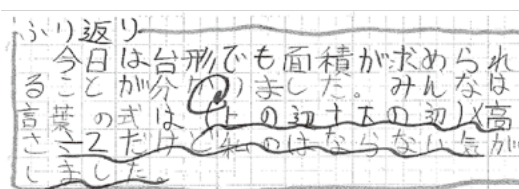 ふり返り
今日は台形でも面積が求められ
ることが分かりました。みんなは
言葉の式は(上の辺+下の辺)×高
さ÷2だけど私のはならない気が
しました。